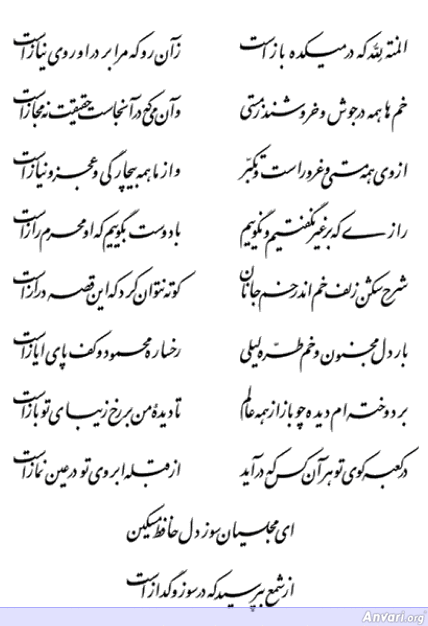 المنة لله که در میکده باز است زآن رو که مرا بر در او روی نیاز است
خم ها همه در جوش و خروشند ز مستی وآن می که در آنجاست حقیقت نه مجاز است
از وی همه مستی و غرور است و تکبّر وز ما همه بیچارگی و عجز و نیاز است
رازی که بر غیر نگفتیم و نگوییم با دوست بگوییم که او محرم راز است
شرح شکن زلف خم اندر خم جانان کوته نتوان کرد که این قصه دراز است
بار دل مجنون و خم طرّه لیلی رخساره محمود و کف پای ایاز است
بردوخته ام دیده چو باز از همه عالم تا دیدهٔ من بر رخ زیبای تو باز است
در کعبه کوی تو هر آن کس که درآید از قبله ابروی تو در عین نماز است
ای مجلسیان سوز دل حافظ مسکین
از شمع بپرسید که در سوز و گداز است
Anvari.org